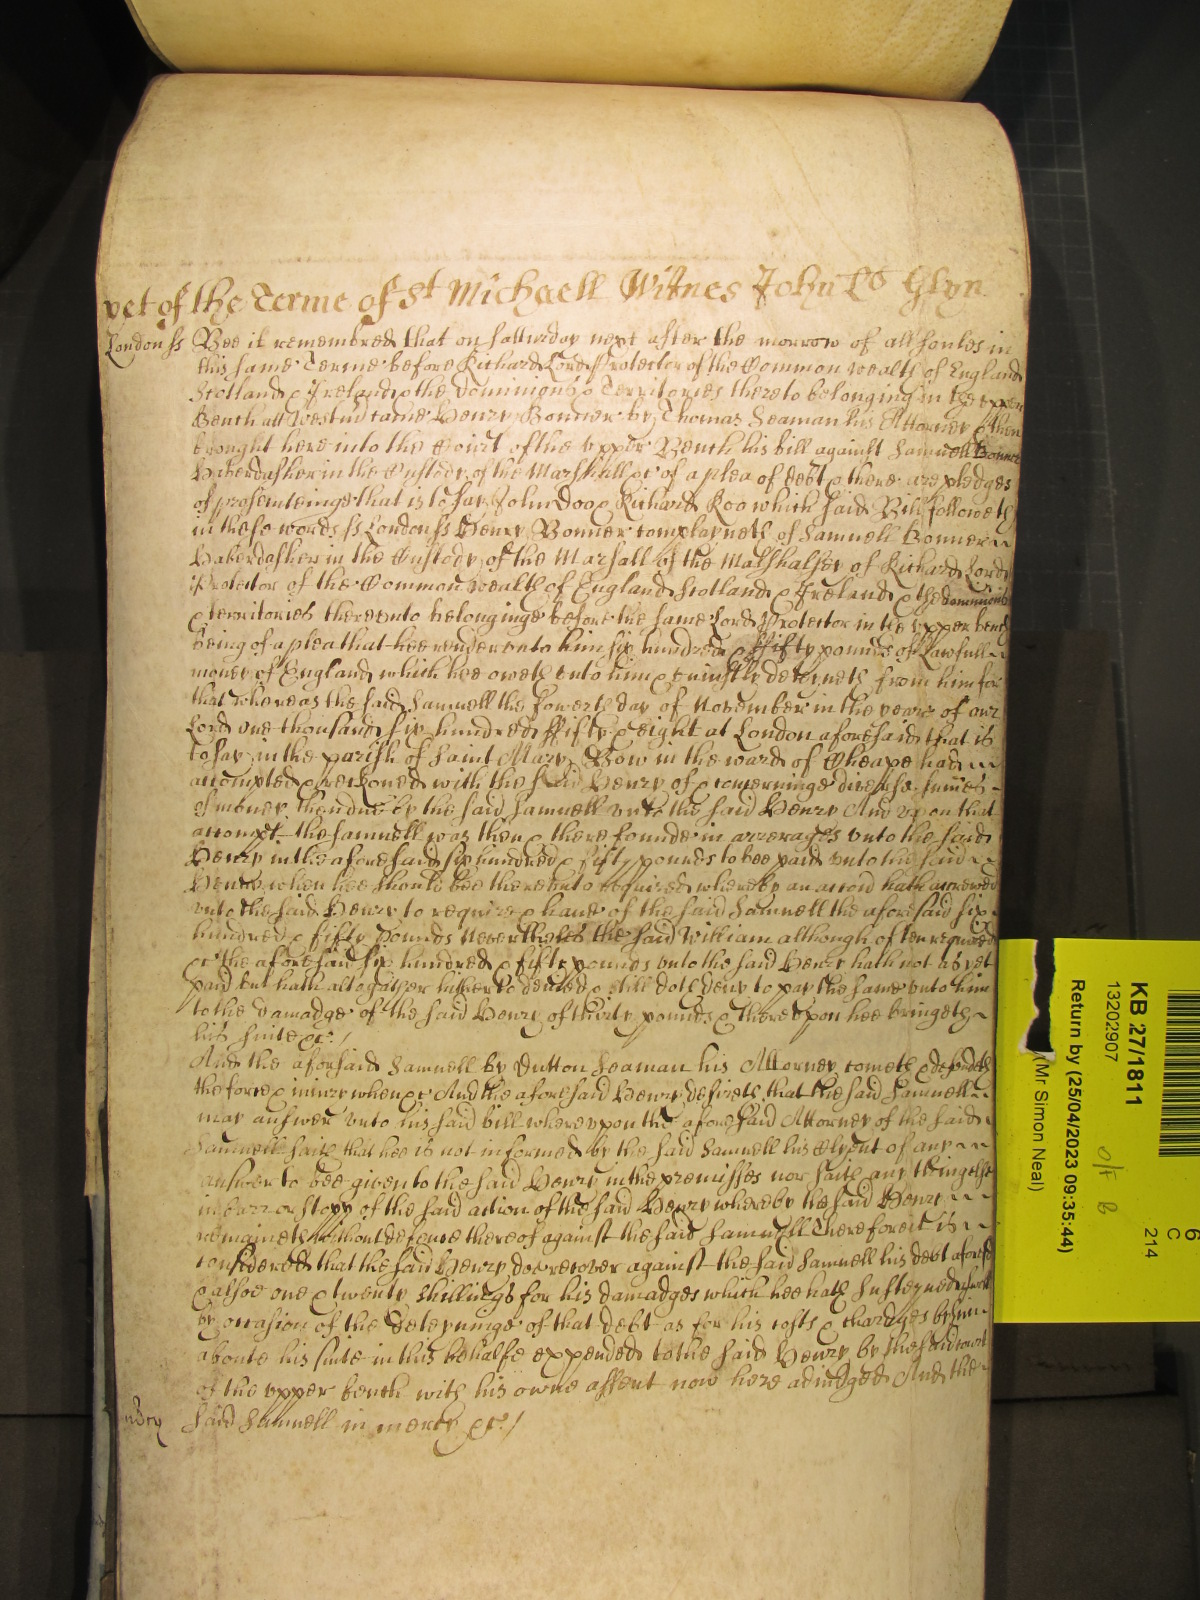 yet of the Terme of St Michaell Witnes John Lo Glyn
London ss Bee it remembred that on satturday next after the morrow of all soules in
this same Terme before Richard Lord Protector of the Common wealth of England
Scotland & Ireland & the dominions & Territories thereto belonging in the upper
Bench att Westm came Henry Bonner by Thomas Seaman his Attorney & then
brought here into the Court of the upper Bench his bill against Samuell Bonner
Haberdasher in the Custody of the Marshall &c of a plea of debt & there are pledges
of prosecuteinge that is to say John Doo & Richard Roo which said Bill followeth
in these words ss London ss Henry Bonner complayneth of Samuell Bonner
Haberdasher in the Custody of the Marshall of the Marshalsey of Richard Lord
Protector of the Common wealth of England Scotland & Ireland & the dominions
& territories thereunto belonginge before the same Lord Protector in the upper bench
being of a plea that hee render unto him six hundred & ffifty pounds of Lawfull
money of England which hee oweth unto him & uniustly deteyneth from him for
that whereas the said Samuell the fowerth day of November in the yeare of our
Lord one thousand six hundred ffifty & eight at London aforesaid that is
to say in the parish of Saint Mary Bow in the ward of Cheape had
accompted & reckoned with the said Henry of & concerninge diverse summes
of money then due by the said Samuell unto the said Henry And upon that
accompt the Samuell was then & there founde in arrerages unto the said
Henry in the aforesaid six hundred & fifty pounds to bee paid unto the said
Henry when hee should bee thereunto required whereby an accon hath accrewed
unto the said Henry to require & have of the said Samuell the aforesaid six
hundred & fifty Pounds Neverthelesse the said William although often required
&c the aforesaid six hundred & fifty pounds unto the said Henry hath not as yet
paid but hath altogather hitherto denied & still doth deny to pay the same unto him
to the damadge of the said Henry of thirty pounds & thereupon hee bringeth
his suite &c /
And the aforsaid Samuell by Dutton Seaman his Attorney cometh & defendeth
the force & iniury when &c And the aforesaid Henry desireth that the said Samuell
may answer unto his said bill whereupon the aforesaid Attorney of the said
Samuell saith that hee is not informed by the said Samuell his Clyent of any
answer to bee given to the said Henry in the premisses nor saith any thing else
in barr or stopp of the said action of the said Henry whereby the said Henry
remaineth without defence thereof against the said Samuell Therefore it is
considered that the said Henry doe recover against the said Samuell his debt aforesd
& alsoe one & twenty shillings for his damadges which hee hath susteyned aswell
by occasion of the deteyninge of that debt as for his costs & chardges by him
aboute his suite in this behalfe expended to the said Henry by the said court
of the upper bench with his owne assent now here adiudged And the
said Samuell in mercy &c /
KB 27/1811
13202907
Return by (25/04/2023 09:35:44)
(Mr Simon Neal)
6
C
214
o/f B